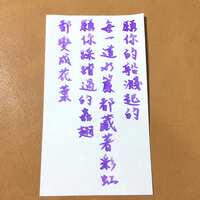 願你的船濺起的
每一道水簾都藏著彩虹
願你踩踏過的
都變成花